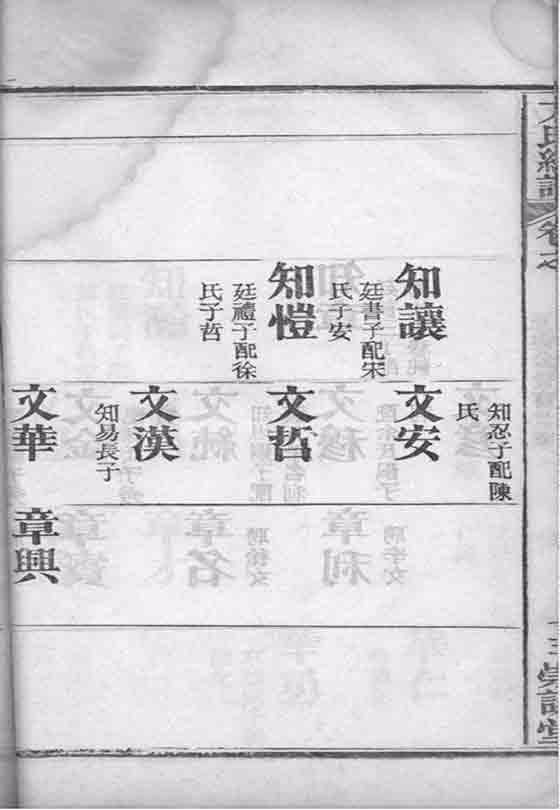 知讓
廷書子配宋
氏子安
知愷
廷禮子配徐
氏子哲
知忍子配陳
氏
文安
文哲
文漢
知易長子
文華
章興